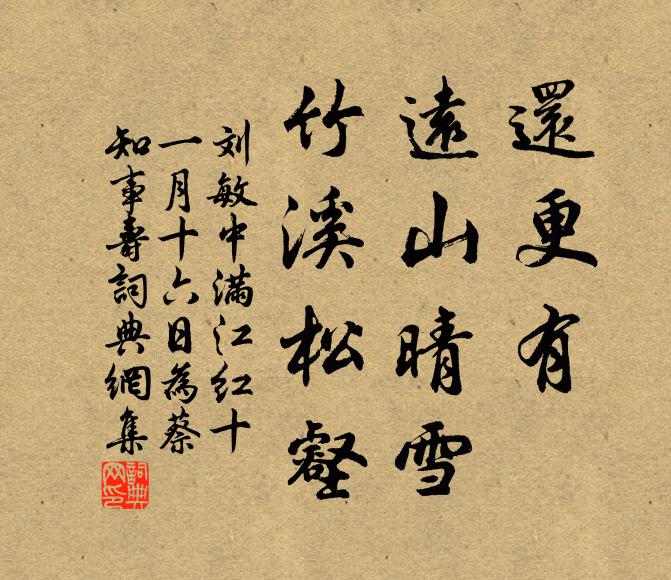 還更有
遠山晴雪
竹溪松壑
刘敏中满江红十
一月十六日為蔡
知事壽詞典網集
詞典
网印